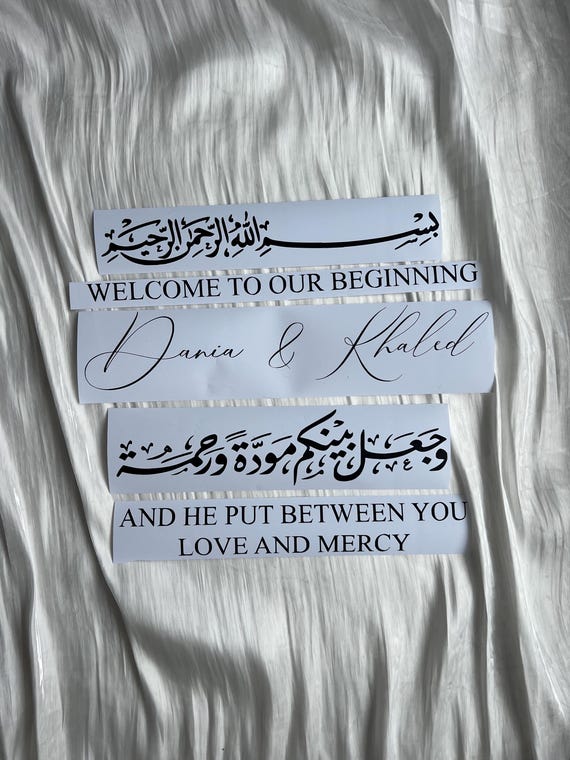 بِسْمِ اللهِ الرَّحْمَنِ الرَّحِيْمِ
WELCOME TO OUR BEGINNING
Dania & Khaled
وَجَعَلَ بَيْنَكُم مَوَدَّةً وَرَحْمَةً
AND HE PUT BETWEEN YOU
LOVE AND MERCY